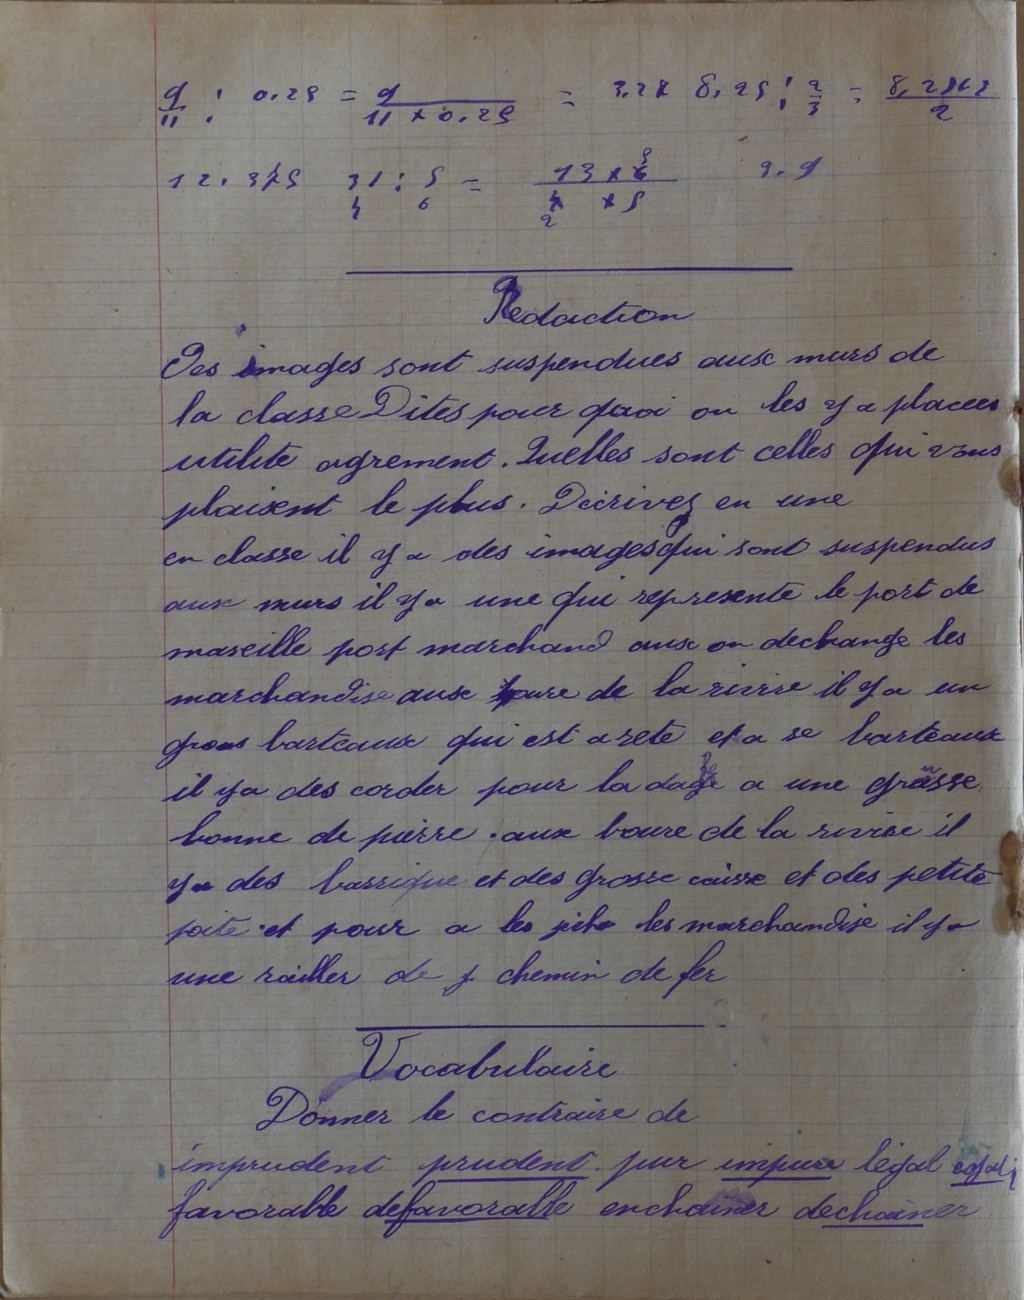 9/11 : 0.25 = 9/11 x 0.25 = 3.27 8.25 : 2/3 = 8.25x3/2
12.375 31/4 : 5/6 = 13 x 6 3/4 2 x 5 3.9
Rédaction
Des images sont suspendues aux murs de
la classe Dites pour quoi on les y a placees
utilité agrement. Quelles sont celles qui vous
plaisent le plus. Décrivez en une
en classe il y a des images qui sont suspendus
aux murs il y a une qui represente le port de
marseille port marchand aux on dechange les
marchandise aux boure de la rivire il y a un
gros barteaux qui est areté et a se barteaux
il y a des corder pour la dage a une grosse
bonne de pierre . aux boure de la rivire il
y a des barrique et des grosse caisse et des petite
et pour a les les marchandise il y a
une railler de chemin de fer
Vocabulaire
Donner le contraire de
imprudent prudent. pur impure légal
favorable defavorable enchainer dechainer